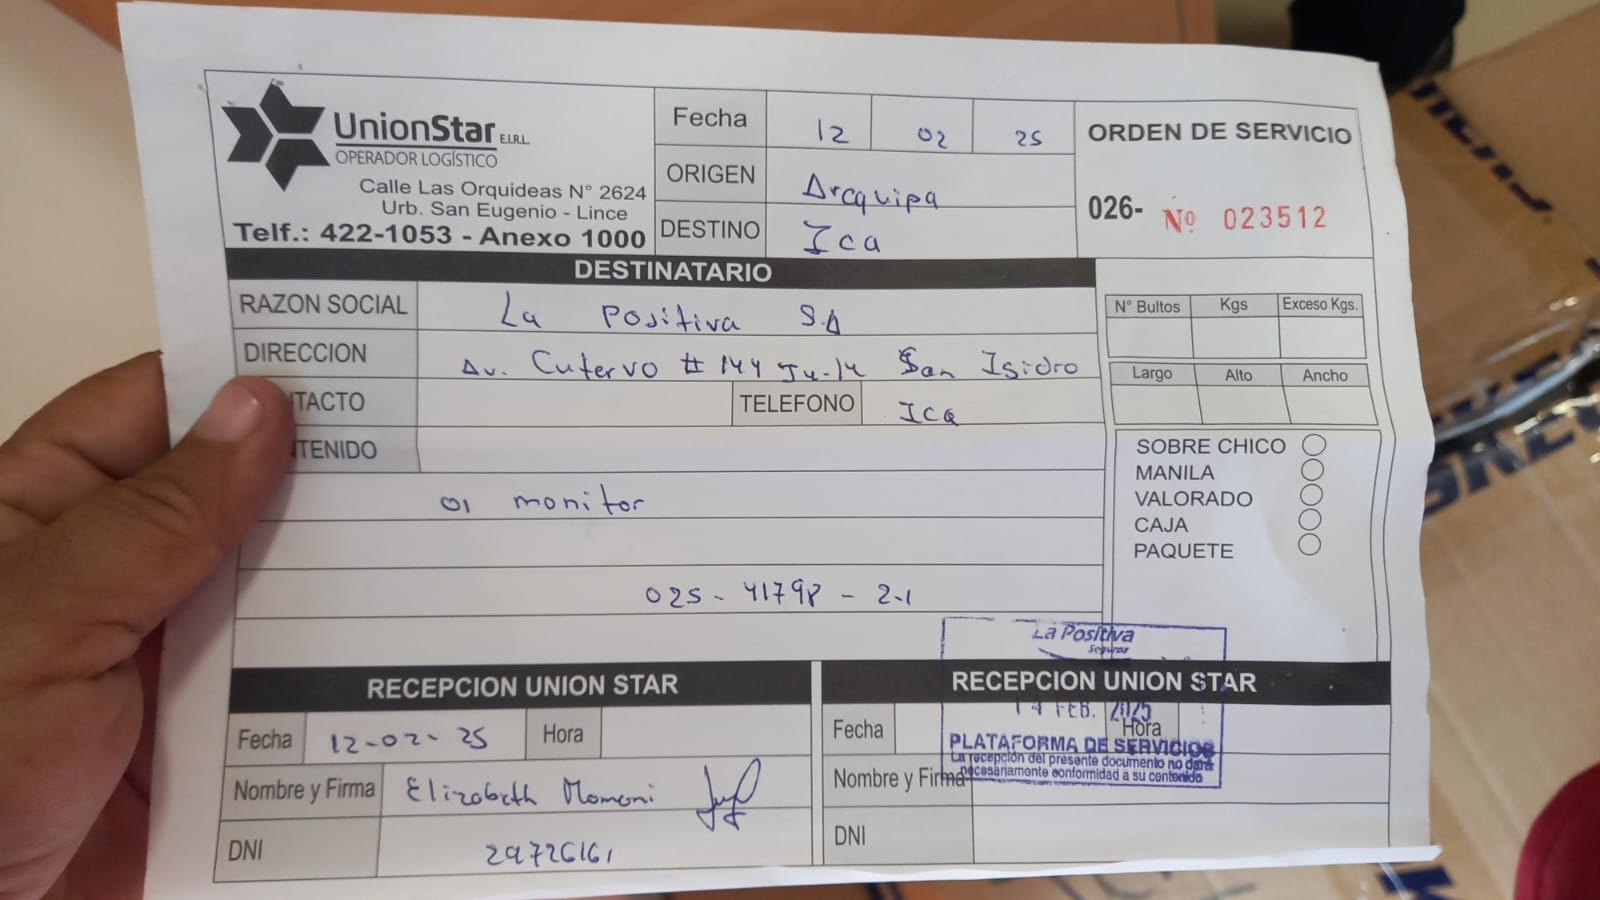 UnionStar E.I.R.L.
OPERADOR LOGÍSTICO
Calle Las Orquideas N° 2624
Urb. San Eugenio - Lince
Telf.: 422-1053 - Anexo 1000
Fecha 12 02 25
ORIGEN Arequipa
DESTINO Ica
ORDEN DE SERVICIO
026- Nº 023512
DESTINATARIO
RAZON SOCIAL La Positiva SA
DIRECCION Av. Cutervo # 144 San Isidro
NTACTO TELEFONO Ica
NTENIDO
01 monitor
025 - 41798 - 2.1
N° Bultos Kgs Exceso Kgs.
Largo Alto Ancho
SOBRE CHICO
MANILA
VALORADO
CAJA
PAQUETE
RECEPCION UNION STAR
Fecha 12-02-25 Hora
Nombre y Firma Elizabeth Mamani
DNI 29726161
RECEPCION UNION STAR
Fecha Hora
Nombre y Firma
DNI
La Positiva
Seguros
14 FEB. 2025
PLATAFORMA DE SERVICIOS
La recepción del presente documento no dará
necesariamente conformidad a su contenido